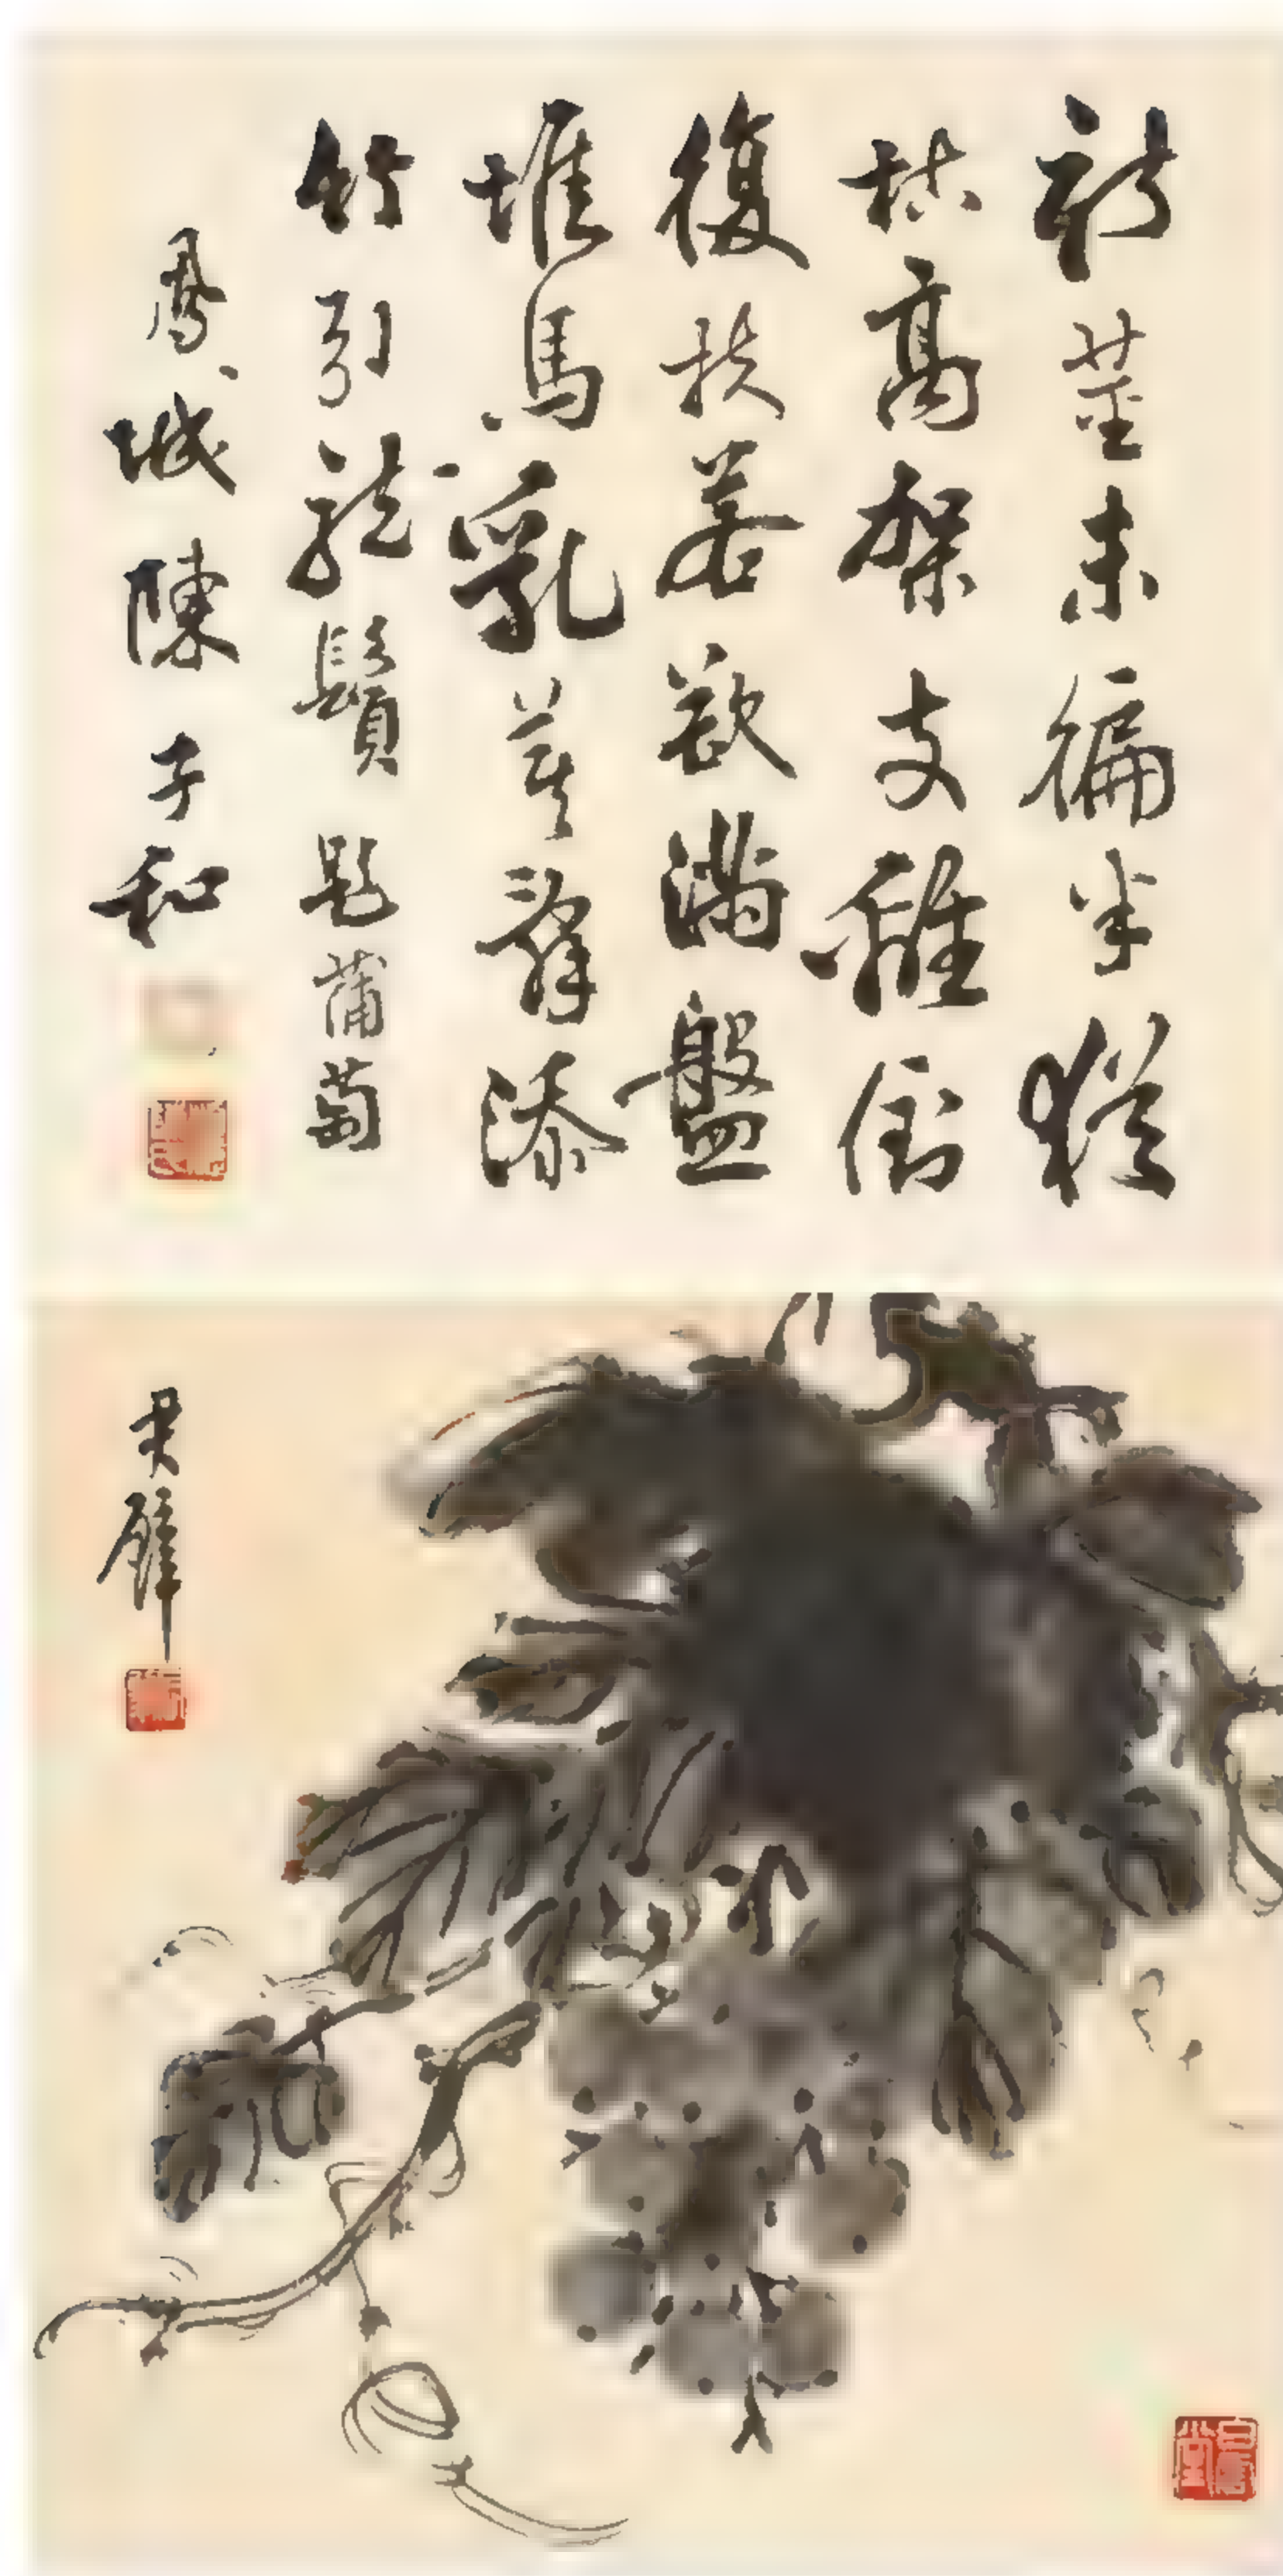 新莖未徧半猶
枯高架支離倒
復扶若欲滿盤
堆馬乳莫辭添
竹引龍鬚 題蒲萄
鳳城陳子和
君璧
白雲堂